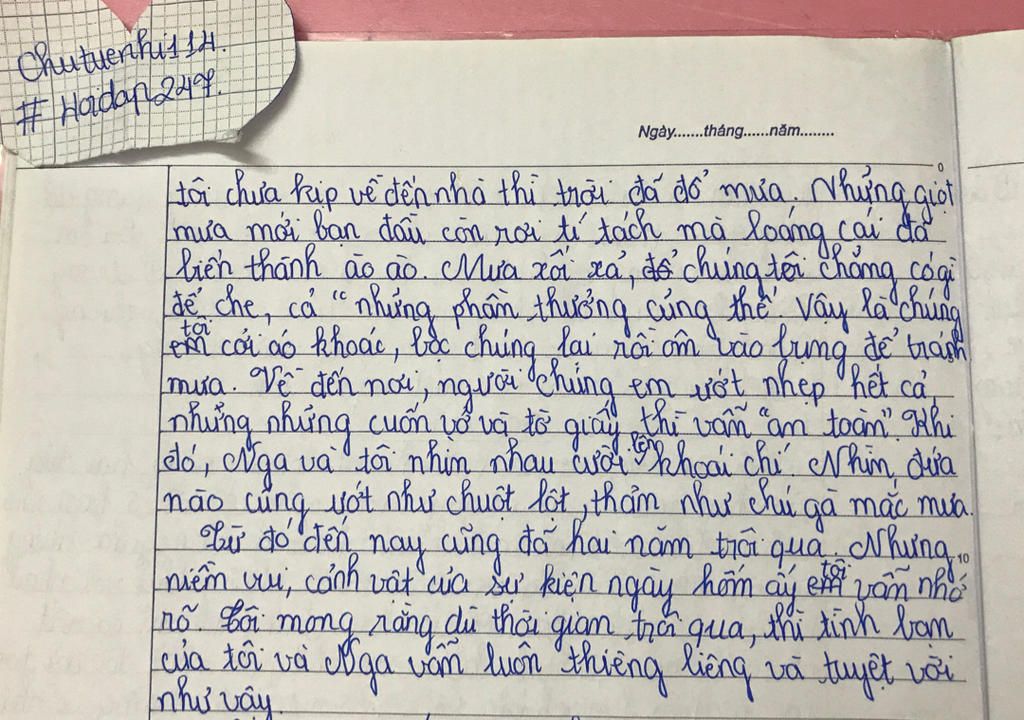 Chutuenhi114.
# Hoidap247.
Ngày.......tháng......năm........
tôi chưa kịp về đến nhà thì trời đã đổ mưa. Những giọt
mưa mới ban đầu còn rơi tí tách mà loáng cái đã
biến thành ào ào. Mưa xối xả, để chúng tôi chẳng có gì
để che, cả "những phần thưởng cũng thế. Vậy là chúng
tôi cởi áo khoác, bọc chúng lại rồi ôm vào bụng để tránh
mưa. Về đến nơi, người chúng em ướt nhẹp hết cả,
nhưng những cuốn vở và tờ giấy thì vẫn "an toàn". Khi
đó, Nga và tôi nhìn nhau cười lên khoái chí. Nhìn đứa
nào cũng ướt như chuột lột, thảm như chú gà mắc mưa.
Từ đó đến nay cũng đã hai năm trôi qua. Nhưng
niềm vui, cảnh vật của sự kiện ngày hôm ấy tôi vẫn nhớ
rõ. Tôi mong rằng dù thời gian trôi qua, thì tình bạn
của tôi và Nga vẫn luôn thiêng liêng và tuyệt vời
như vậy.
10